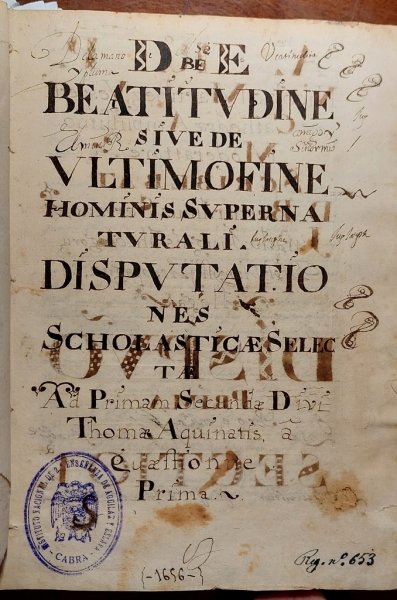 DE
BEATITVDINE
SIVE DE
VLTIMO FINE
HOMINIS SVPERNA
TVRALI.
DISPVTATIO
NES
SCHOLASTICÆ SELEC
TÆ
Ad Primam Secundæ Divi
Thomæ Aquinatis, â
Quæstione
Prima.
INSTITUTO NACIONAL DE 2ª ENSEÑANZA DE AGUILAR Y ESLAVA
CABRA
{-1656-}
Reg. nº. 653